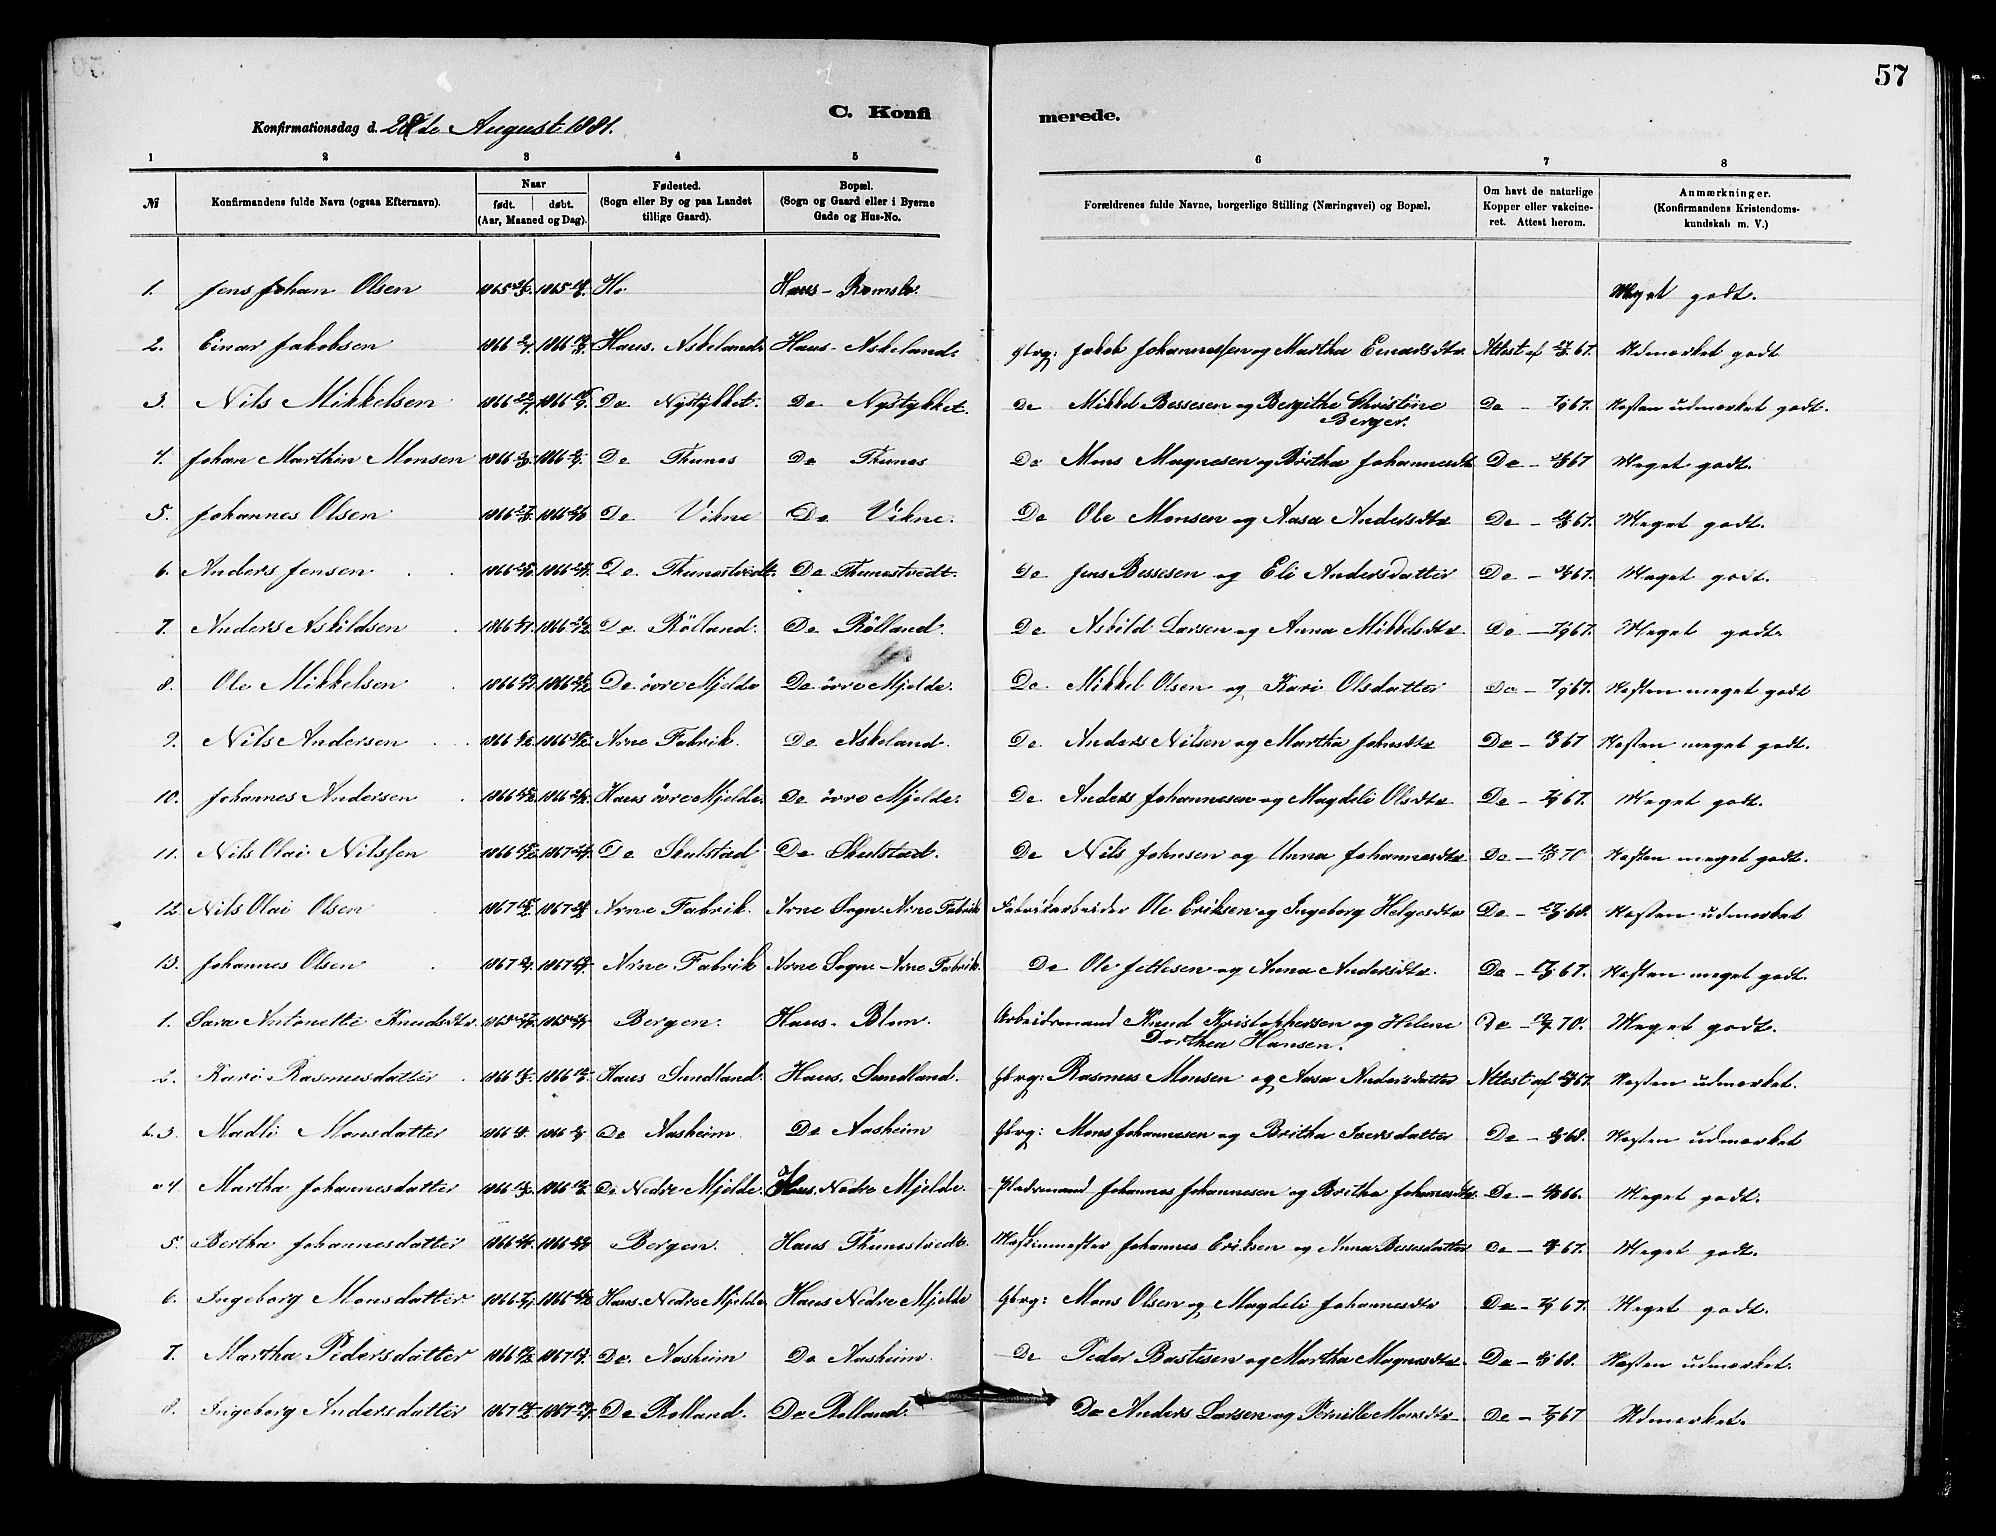 57
C. Konfi merede.
Konfirmationsdag d. 28de August 1881.
1 2 3 4 5 6 7 8
№ Konfirmandens fulde Navn (ogsaa Efternavn). Naar født. døbt. (Aar, Maaned og Dag). Fødested. (Sogn eller By og paa Landet tillige Gaard). Bopæl. (Sogn og Gaard eller i Byerne Gade og Hus-No. Forældrenes fulde Navne, borgerlige Stilling (Næringsvei) og Bopæl. Om havt de naturlige Kopper eller vakcineret. Attest herom. Anmærkninger. (Konfirmandens Kristendomskundskab m. V.)
1. Jens Johan Olsen 1865 1865 Haus - Meget godt.
2. Einar Jakobsen 1866 1866 Haus. Askeland. Haus - Askeland. Gbrg: Jakob Johannessen og Martha Einarsdtr Attest af 67. Udmerket godt
3. Nils Mikkelsen 1866 1866 Do Nystykket. Do Nystykket. Do Mikkel Bessesen og Bergithe Christine Berger. Do - 67. Næsten udmerket godt.
4. Johan Marthin Monsen 1866 1866 Do Thunes Do Thunes Do Mons Magnesen og Britha Johannesdtr Do - 67 Meget godt.
5. Johannes Olsen 1866 1866 Do Vikne Do Vikne. Do Ole Monsen og Aasa Andersdtr Do - 67. Meget godt.
6. Anders Jensen 1866 1866 Do. Thunestvedt. Do Thunestvedt. Do Jens Bessesen og Eli Andersdatter Do - 67. Meget godt.
7. Anders Askildsen 1866 1866 Do Rölland. Do Rölland. Do Askild Larsen og Anna Mikkelsdtr. Do - 67. Meget godt.
8. Ole Mikkelsen 1866 1866 Do övre Mjelde Do övre Mjelde. Do. Mikkel Olsen og Kari Olsdatter Do - 67. Næsten meget godt
9. Nils Andersen 1866 1866 Arne Fabrik. Do Askeland. Do Anders Nilsen og Martha Johnsdtr Do - 67 Næsten meget godt.
10. Johannes Andersen 1866 1866 Haus övre Mjelde. Do övre Mjelde. Do Anders Johannesen og Magdeli Olsdtr Do - 67. Meget godt.
11. Nils Olai Nilssen 1866 1867 Do Skulstad Do Skulstad. Do Nils Johnsen og Unna Johannesdtr Do - 70 Næsten meget godt.
12. Nils Olai Olsen 1867 1867 Arne Fabrik. Arne Sogn. Arne Fabrik Fabrikarbeider Ole Eriksen og Ingeborg Helgesdtr Do - 68. Næsten udmerket
13. Johannes Olsen 1867 1867 Arne Fabrik Arne Sogn - Arne Fabrik. Do Ole Jetlesen og Anna Andersdtr. Do - 67. Næsten meget godt.
1. Sara Antonette Knudsdtr. 1865 1865 Bergen. Haus. Blom. Arbeidsmand Knud Kristoffersen og Helene Dorthea Hansen. Do - 70. Meget godt.
2. Kari Rasmusdatter 1866 1866 Haus Sundland. Haus. Sundland. Gbrg: Rasmus Monsen og Aasa Andersdatter Attest af 67. Næsten udmerket.
3. Madli Monsdatter 1866 1866 Do Aasheim Do Aasheim Gbrg: Mons Johannesen og Britha Iversdatter Do - 68. Næsten udmerket
4. Martha Johannesdatter 1866 1866 Do Nedre Mjelde. Haus. Nedre Mjelde. Pladsmand Johannes Johannesen og Britha Johannesdtr. Do - 66. Meget godt.
5. Bertha Johannesdatter 1866 1866 Bergen. Haus Thunestvedt. Maskinmester Johannes Eriksen og Anna Bessesdatter Do - 67. Meget godt.
6. Ingeborg Monsdatter 1866 1866 Haus. Nedre Mjelde. Haus Nedre Mjelde Gbrg: Mons Olsen og Magdeli Johannesdtr Do - 67. Meget godt.
7. Martha Pedersdatter 1866 1867 Do. Aasheim Do Aasheim. Do Peder Bastesen og Martha Magnesdtr. Do - 68. Næsten udmerket.
8. Ingeborg Andersdatter 1867 1867 Do Rolland. Do Rolland. Do Anders Larsen og Pernille Monsdtr. Do - 67 Udmerket.